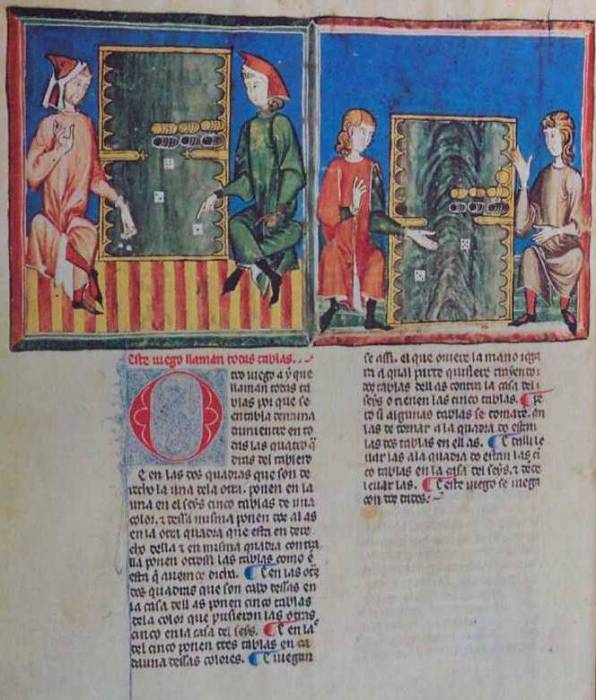 Este iuego llaman todas tablas.
Otro iuego a y que
llaman todas ta
blas por que se
entabla
en to
das las quatro q̃
dras del tablero
⁊ en las dos quadras que son de
recho la una dela otra. ponen en la
una en el seys cinco tablas de una
color. ⁊ dessa misma ponen
en la otra quadra que esta en dere
cho della ⁊ en misma quadra contra
lla ponen otrossi las tablas como
esta q̃ auemos dicha. ⁊ en las otras
dos quadras que son cabo destas en
la casa del as ponen cinco tablas
dela color que pusieron las otras
cinco en la casa del seys. ⁊ en la
del cinco ponen tres tablas en ca
dauna destas colores. ⁊ iuegan
se assi. el que ouiere la mano
ra a qual parte quisiere
tablas del as contra la casa del
seys o tienen las cinco tablas.
si algunas tablas se tomaren. an
las de tornar a la quadra o estan
las dos tablas en el as. ⁊ dalli le
uar las ala quadra o estan las ci
co tablas en la casa del seys. ⁊
leuar las. ⁊ este iuego se iuega
con dos dados.